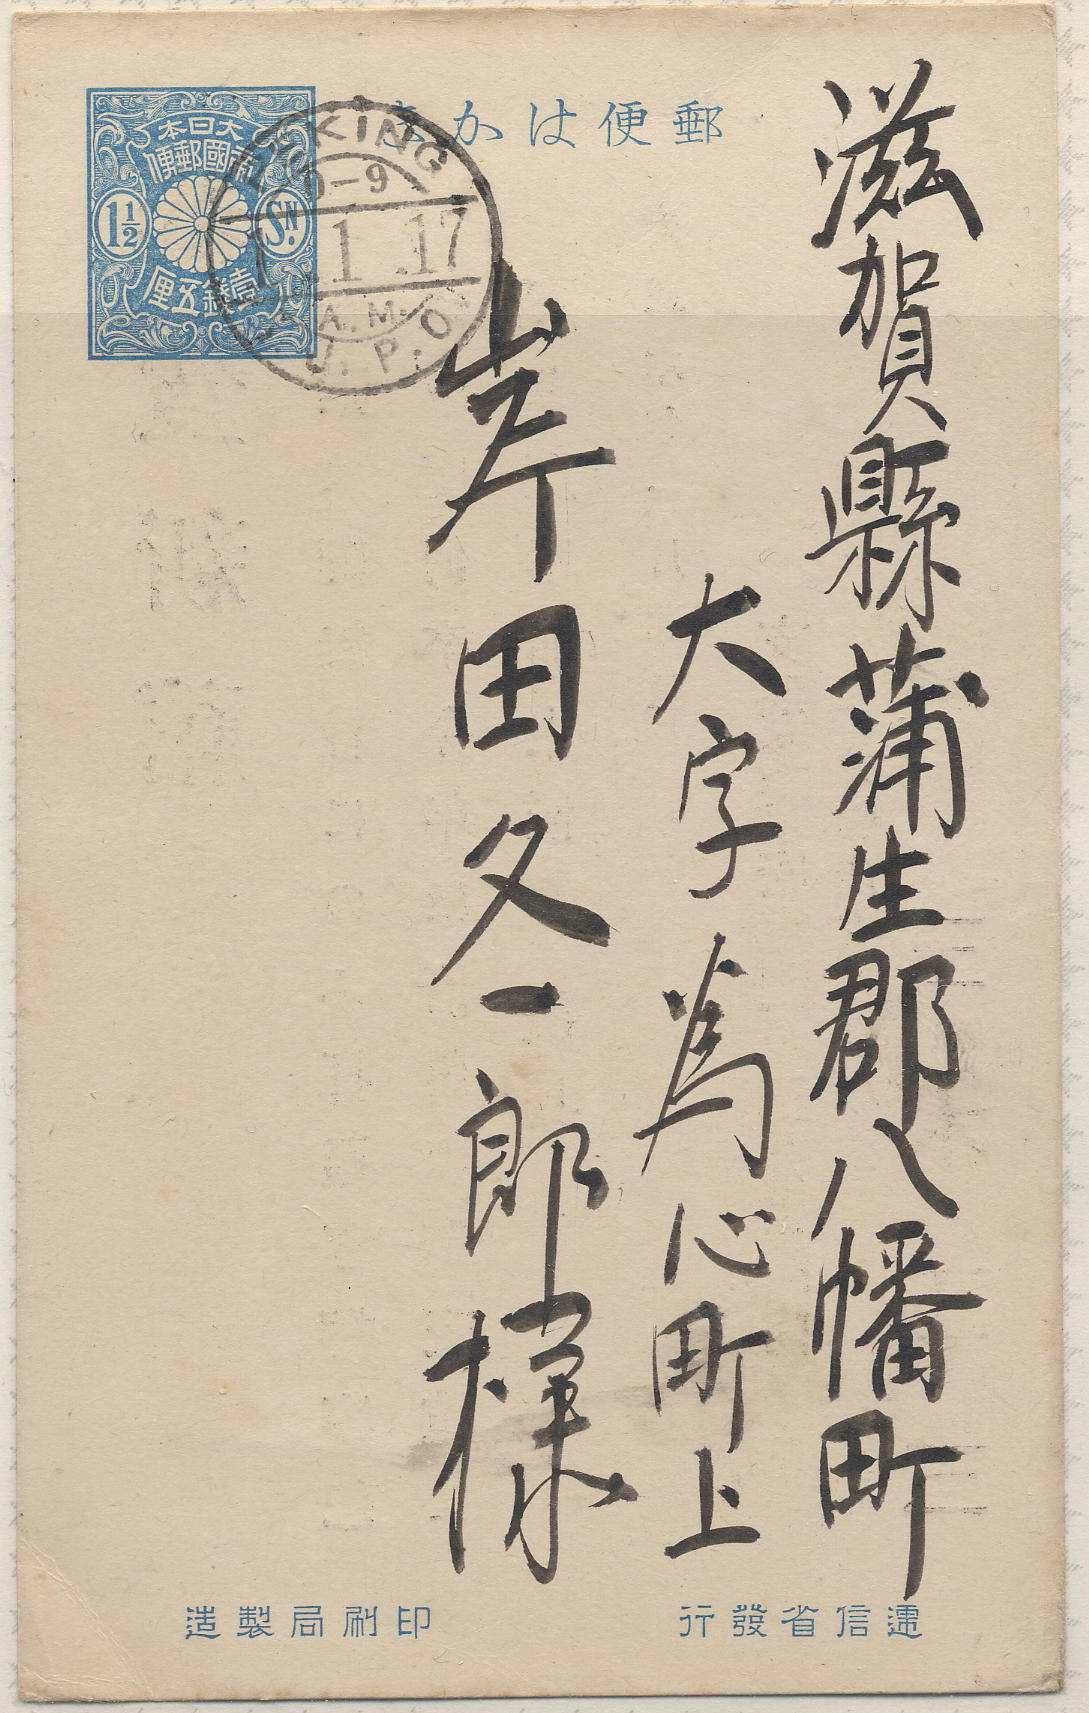 郵便はかき
大日本
帝國郵便
1½
SN.
壹錢五厘
PEKING
9
1.17
A.M.
I.J.P.O.
滋賀縣蒲生郡八幡町
大字為心町上
岸田久一郎様
逓信省發行
印刷局製造